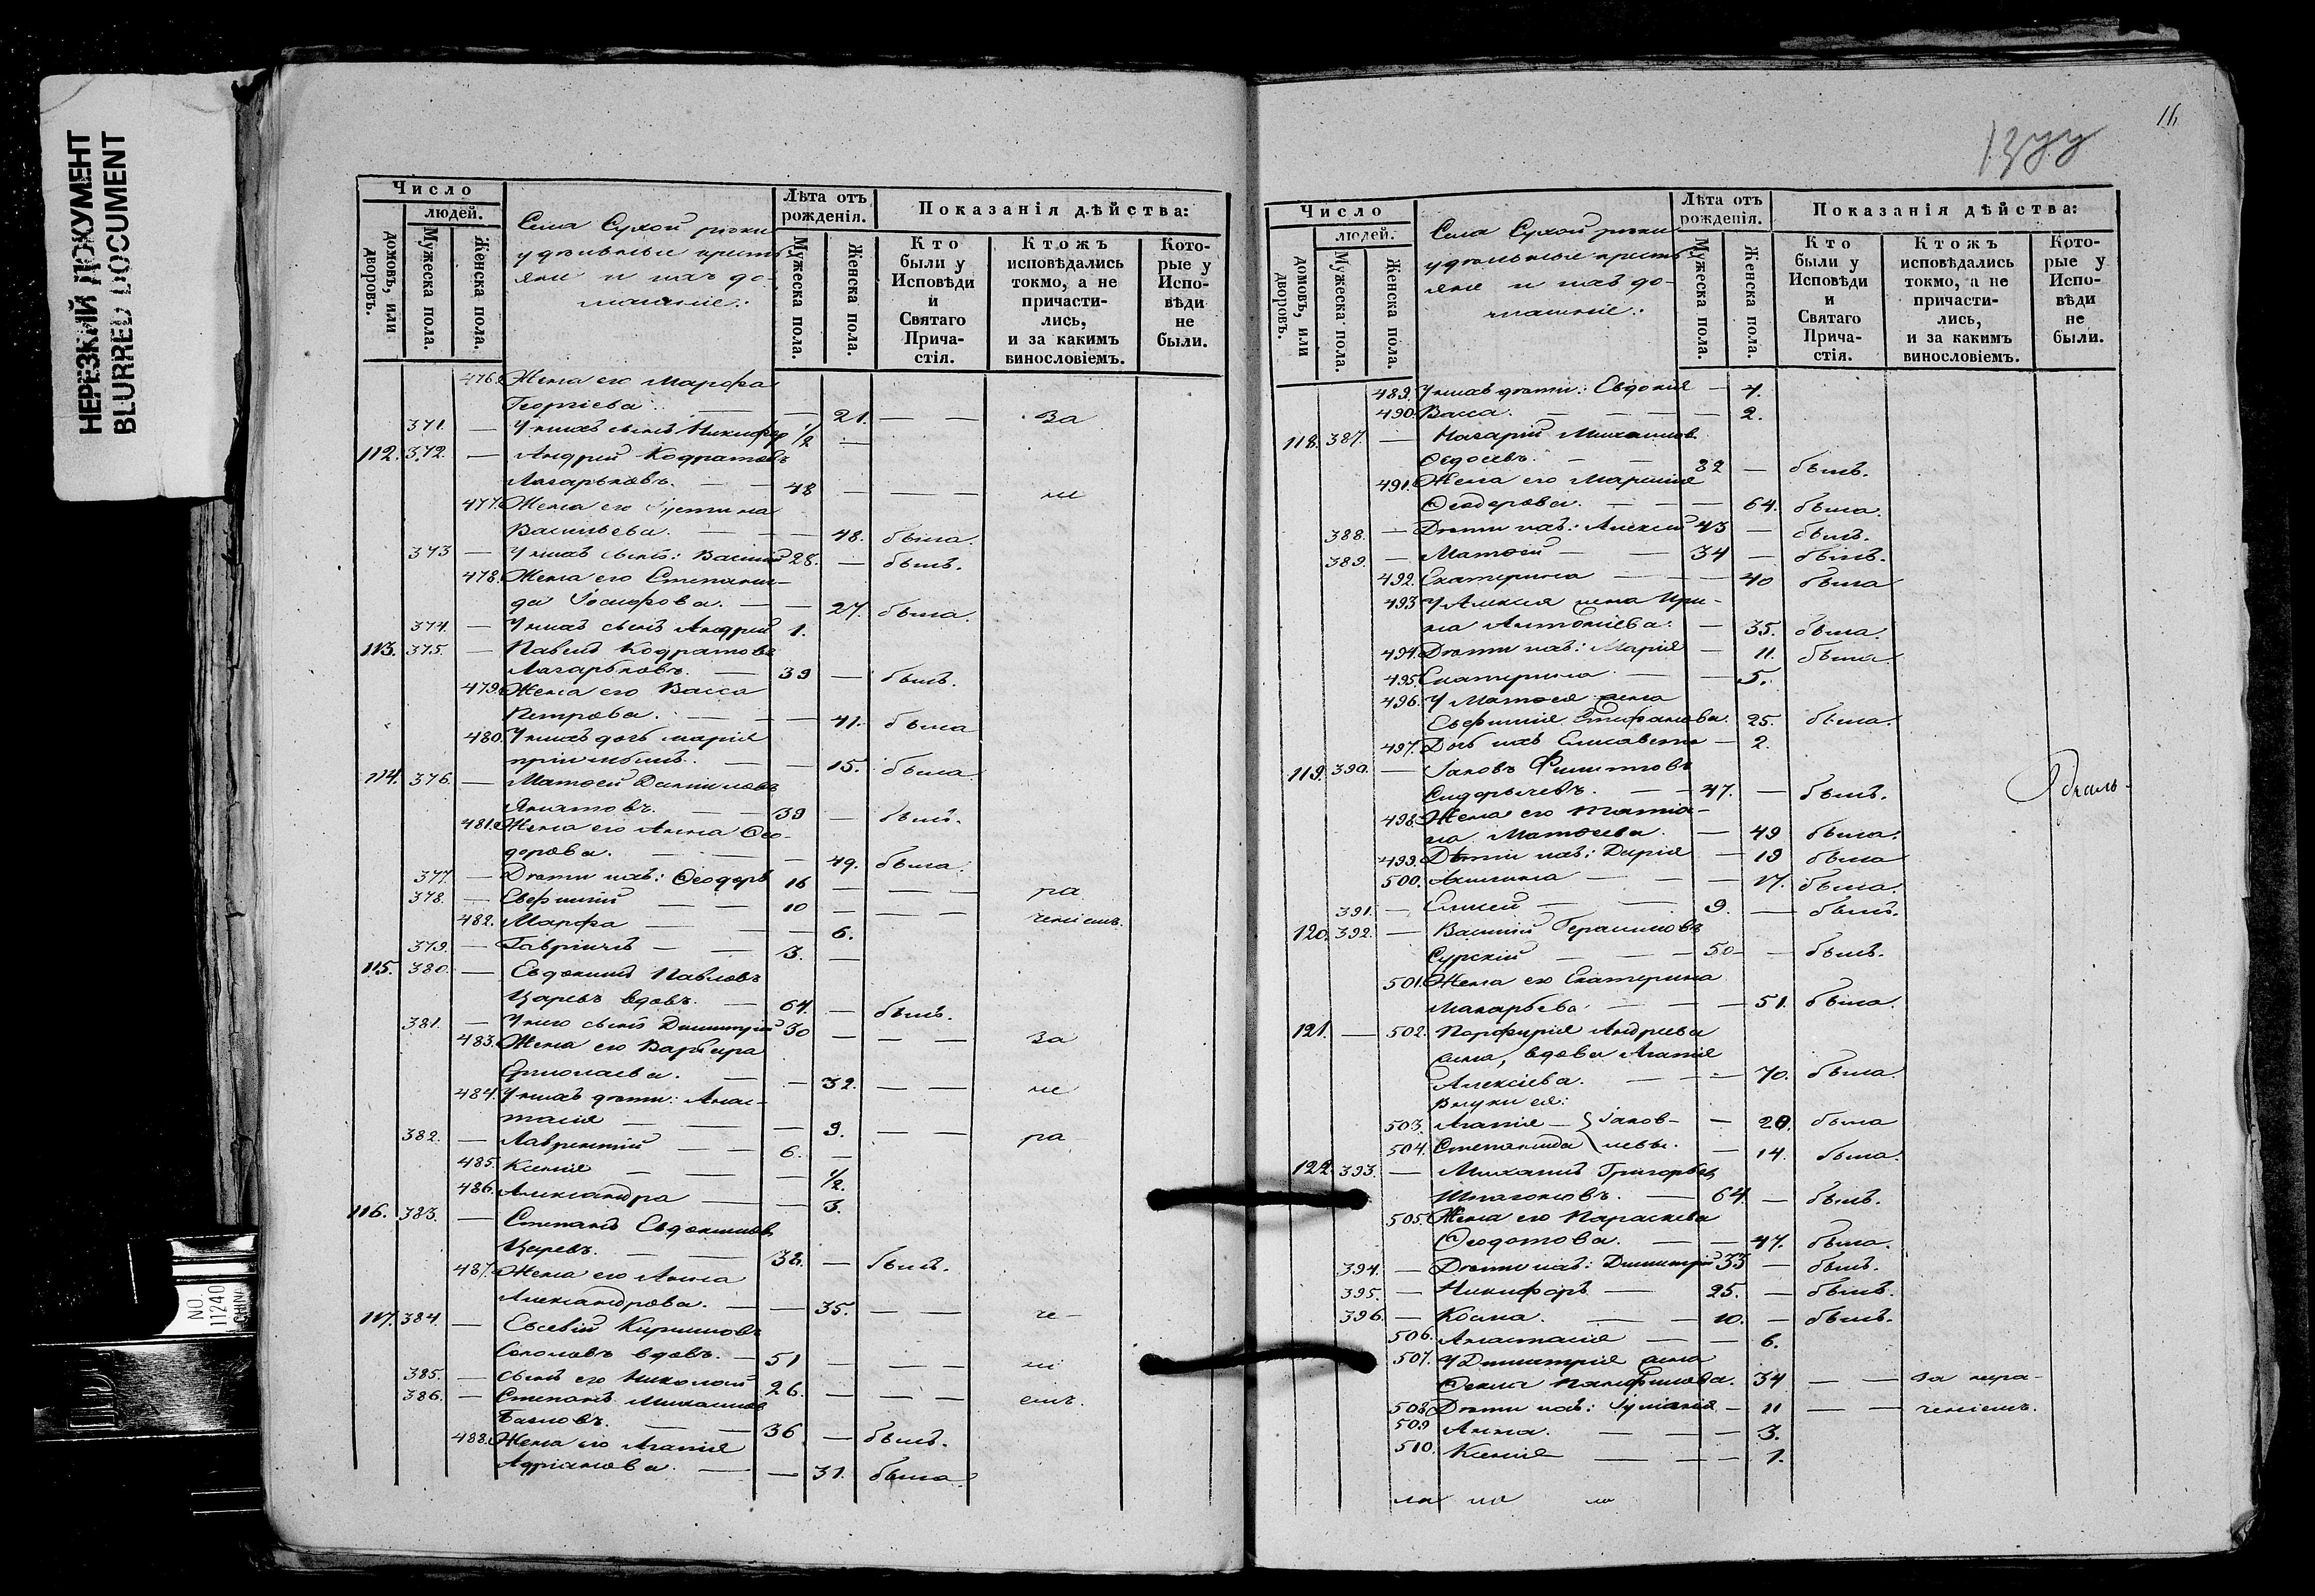 НЕРЕЗКИЙ ДОКУМЕНТ
BLURRED DOCUMENT
NO. 11240
CHINA
Число
людей.
домовъ, или дворовъ.
Мужеска пола.
Женска пола.
Села Сухой рѣчки
удѣльные кресть
яне и ихъ до-
машніе:
Лѣта отъ рожденія.
Мужеска пола.
Женска пола.
Показанія дѣйства:
Кто были у Исповѣди и Святаго Прича-стія.
Ктожъ исповѣдались токмо, а не причасти-лись, и за какимъ винословіемъ.
Кото-рые у Испо-вѣди не были.
476. Жена его Марѳа
Георгіева. — — 21. — — За
371. — У нихъ сынъ Никифор 1/2 —
112. 372. — Андрей Кодратовъ
Лагарьковъ. — — 48 — — — не
477. Жена его Іустина
Васильева. — — — 48. была.
373 — У нихъ сынъ: Василій 28. — былъ.
478. Жена его Степани-
да Іосифова. — — 27. была.
374. — У нихъ сынъ Андрей 1.
113. 375. — Павелъ Кодратовъ
Лагарьковъ. — 39 — былъ.
479. Жена его Васса
Петрова. — — — 41. была
480. У нихъ дочь Марія
— — 15. была
114. 376. — Матѳей Даниловъ
— — 39 — былъ.
481. Жена его Анна Ѳео-
дорова. — — — 49. была.
377. — Дѣти ихъ: Ѳеодоръ 16 — — — ра
378. — Евфимій — — 10 — — — ченіемъ.
482. Марѳа — — — 6.
379. — Гавріилъ — — 3. —
115. 380. — Евдокимъ Павловъ
Царевъ вдовъ. — 64. — былъ.
381. — У него сынъ Димитрій 30 — — — за
483. Жена его Варвара
Ермолаева. — — 32. — — не
484. У нихъ дѣти: Анас-
тасія — — — 9. — — ра
382. — Лаврентій — — 6. —
485. Ксенія — — — 1/2.
486. Александра — — 3.
116. 383. — Степанъ Евдокимовъ
Царевъ. — — 32. — былъ.
487. Жена его Анна
Александрова. — — 35. — — че
117. 384. — Евсевій Кириловъ
Соколовъ вдовъ. — 51 — — — ні
385. — Сынъ его Николай 26. — — — емъ.
386. — Степанъ Михаиловъ
— — 36 — былъ.
488. Жена его Агапія
Адріанова. — — 31. была.
16
Число
людей.
домовъ, или дворовъ.
Мужеска пола.
Женска пола.
Села Сухой рѣчки
удѣльные кресть
яне и ихъ до-
машніе:
Лѣта отъ рожденія.
Мужеска пола.
Женска пола.
Показанія дѣйства:
Кто были у Исповѣди и Святаго Прича-стія.
Ктожъ исповѣдались токмо, а не причасти-лись, и за какимъ винословіемъ.
Кото-рые у Испо-вѣди не были.
489. У нихъ дѣти: Евдокія — 4.
490. Васса. — — — 2.
118. 387. — Назарій Михаиловъ
Ѳедосѣевъ. — — 82 — былъ.
491. Жена его Марина
Ѳеодорова. — — — 64. была.
388. — Дѣти ихъ: Алексій 43 — былъ.
389. — Матѳей — — 34 — былъ.
492. Екатерина — — — 40 была
493 У Алексія жена Ири-
на Антоніева: — 35. была.
494. Дѣти ихъ: Марія — 11. была.
495 Екатерина — — 5.
496. У Матѳея жена
Евфимія Епифанова. 25. была.
497. Дочь ихъ Елисавета — 2.
119. 390. — Іаковъ Филиповъ
Сидорычевъ. — — 47. — былъ.
498. Жена его Татіа-
на Матѳеева. — 49 была.
499. Дѣти ихъ: Дарія — 19 была
500. Акилина — — — 17. была.
391. — Елисей — — 9. — былъ.
120. 392. — Василій Герасимовъ
Сурскій — — 50 — былъ.
501. Жена его Екатерина
Макарьева. — — — 51. была.
121. — 502. Порфирія Андреева
жена, вдова Агапія
Алексіева. — — — 70. была.
Внуки ея:
503. Агапія — } Іаков- — 20. была
504. Степанида } левы. — 14. была.
122. 393. — Михаилъ Григорьевъ
— 64. — былъ.
505. Жена его Параскева
Ѳеодотова. — — 47. была.
394. — Дѣти ихъ: Димитрій 33 — былъ.
395. — Никифоръ — 25. — былъ.
396. — Косма. — — 10. — былъ.
506. Анастасія — — 6.
507. У Димитрія жена
Ѳекла Панфилова. 34 — — за нера-
508. Дѣти ихъ: Іуліанія — 11 — — ченіемъ.
509 Анна. — — — 3.
510. Ксенія — — — 1.